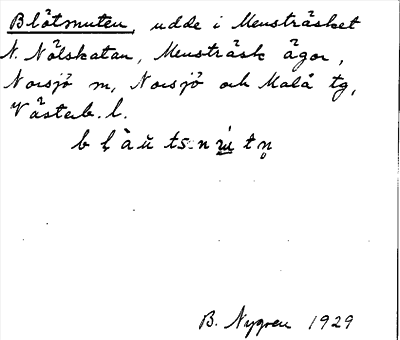 Blötmuten, udde i Mensträsket
N. Nölskatan, Mensträsk ägor,
Norsjö m, Norsjö och Malå tg,
Västerb. l.
B. Nygren 1929